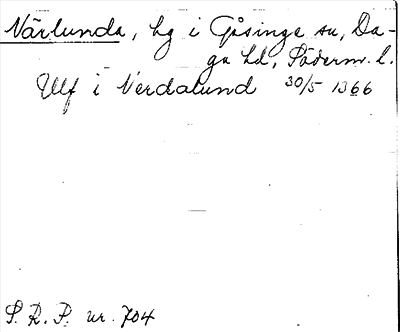 Närlunda, hg i Gåsinge sn, Da-
ga hd, Söderm. l.
Ulf i Nerdalund 30/5 1366
S. R. P. nr. 704